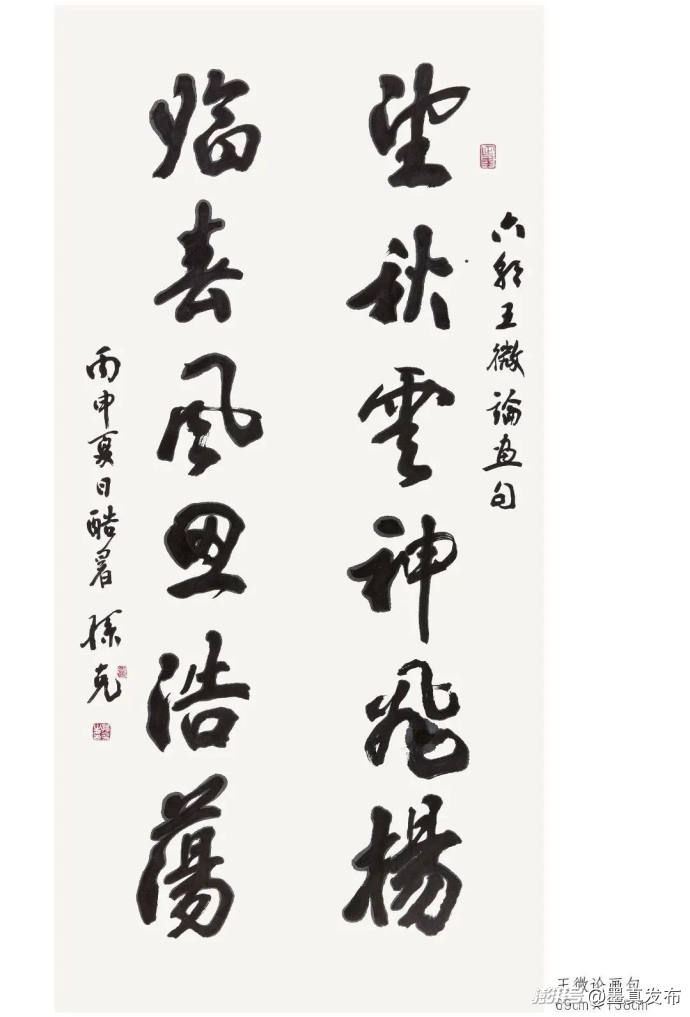 六朝王微論畫句
望秋雲神飛揚
臨春風思浩蕩
丙申夏日酷暑 孫克
王微论画句
69cm×138cm
澎湃号@墨真发布